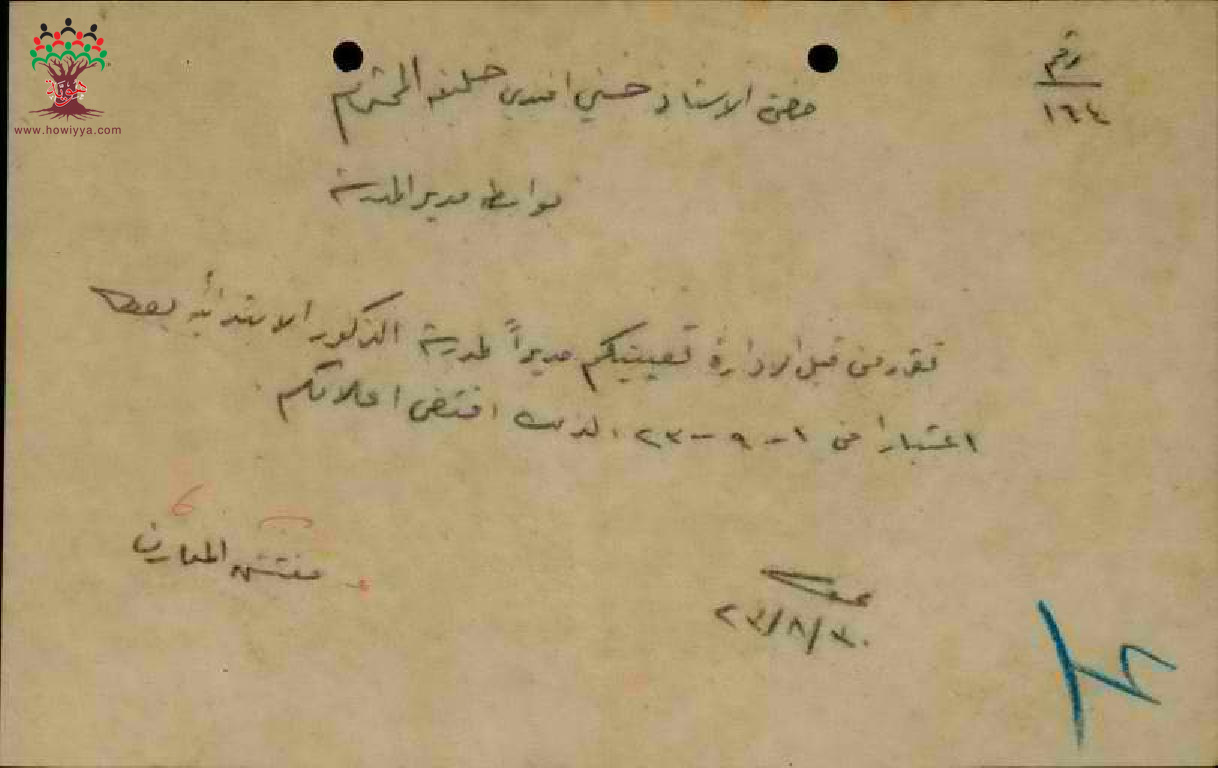 هوية
www.howiyya.com
رقم
١٦٤
حضرة الاستاذ حسني افندي خليفه المحترم
بواسطة مدير المدرسة
تقرر من قبل الادارة تعيينكم مديراً لمدرسة الذكور الابتدائية بعكا
اعتباراً من ١-٩-٢٣. لذلك اقتضى اعلامكم.
مفتش المعارف
عكا
٢٣/٨/٣٠